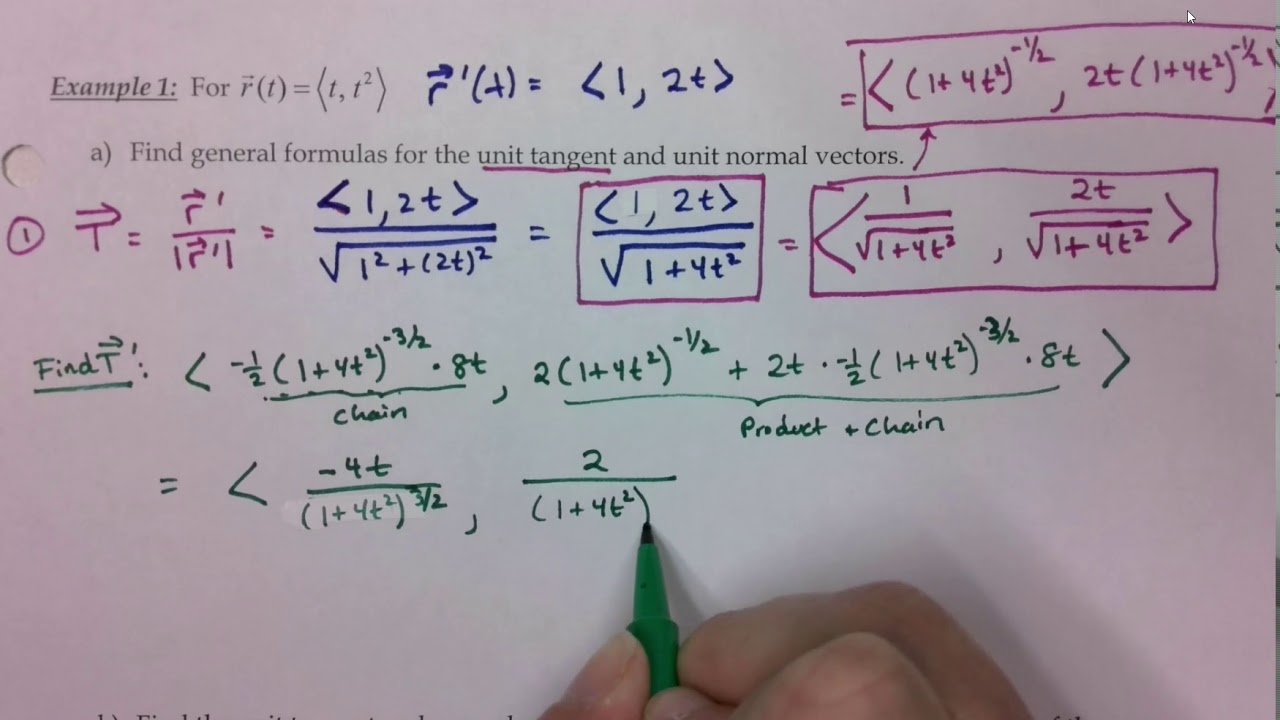 Example 1: For r⃗(t) = ⟨t, t²⟩ r⃗'(t) = <1, 2t>
= <(1+4t²)^-1/2, 2t(1+4t²)^-1/2>
a) Find general formulas for the unit tangent and unit normal vectors.
① T⃗ = r⃗'/|r⃗'| = <1, 2t>/√(1²+(2t)²) = <1, 2t>/√(1+4t²) = <1/√(1+4t²), 2t/√(1+4t²)>
Find T⃗': <-½(1+4t²)^-3/2 · 8t, 2(1+4t²)^-1/2 + 2t · -½(1+4t²)^-3/2 · 8t>
chain Product + Chain
= < -4t/(1+4t²)^3/2, 2/(1+4t²)